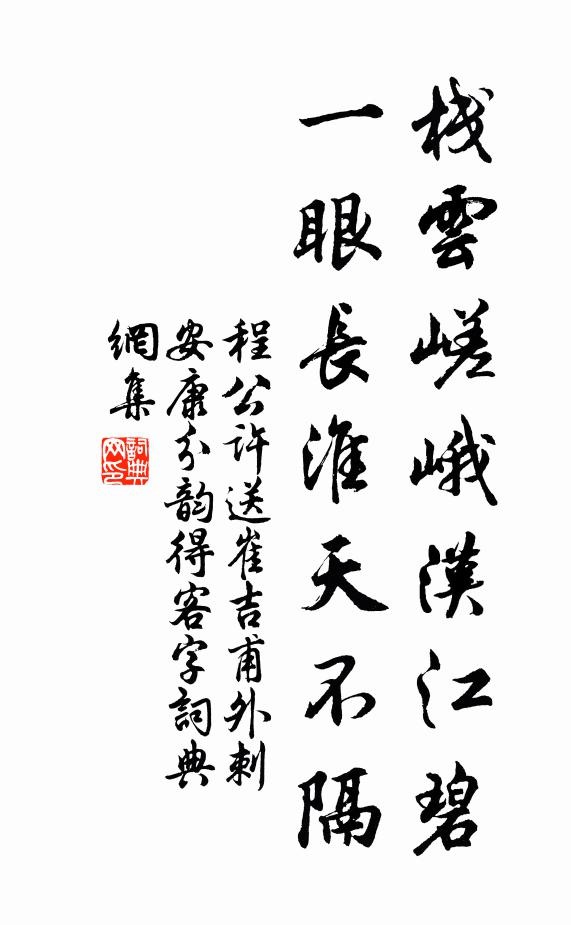 栈雲嵯峨漢江碧
一眼長淮天不隔
程公許送崔吉甫外刺
安康分韵得客字詞典
網集
詞典
网印